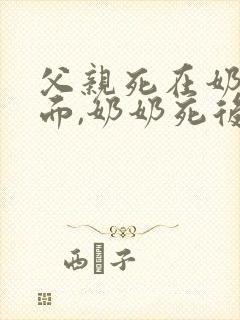 父親死在奶
而,奶奶死後
西子